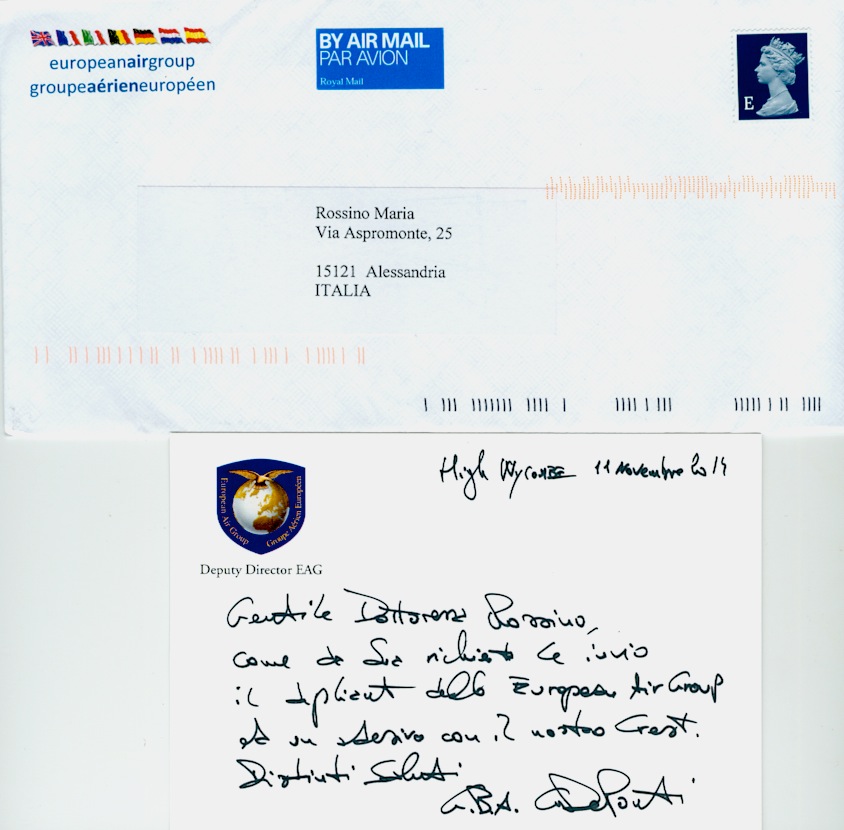 europeanairgroup
groupeaérieneuropéen
BY AIR MAIL
PAR AVION
Royal Mail
E
Rossino Maria
Via Aspromonte, 25
15121 Alessandria
ITALIA
European Air Group
Groupe Aérien Européen
Deputy Director EAG
High Wycombe 11 Novembre 2014
Gentile Dottoressa Rossino,
come da Sua richiesta Le invio
il depliant dello European Air Group
ed un adesivo con il nostro Crest.
Distinti Saluti
G.B.A. De Ponti